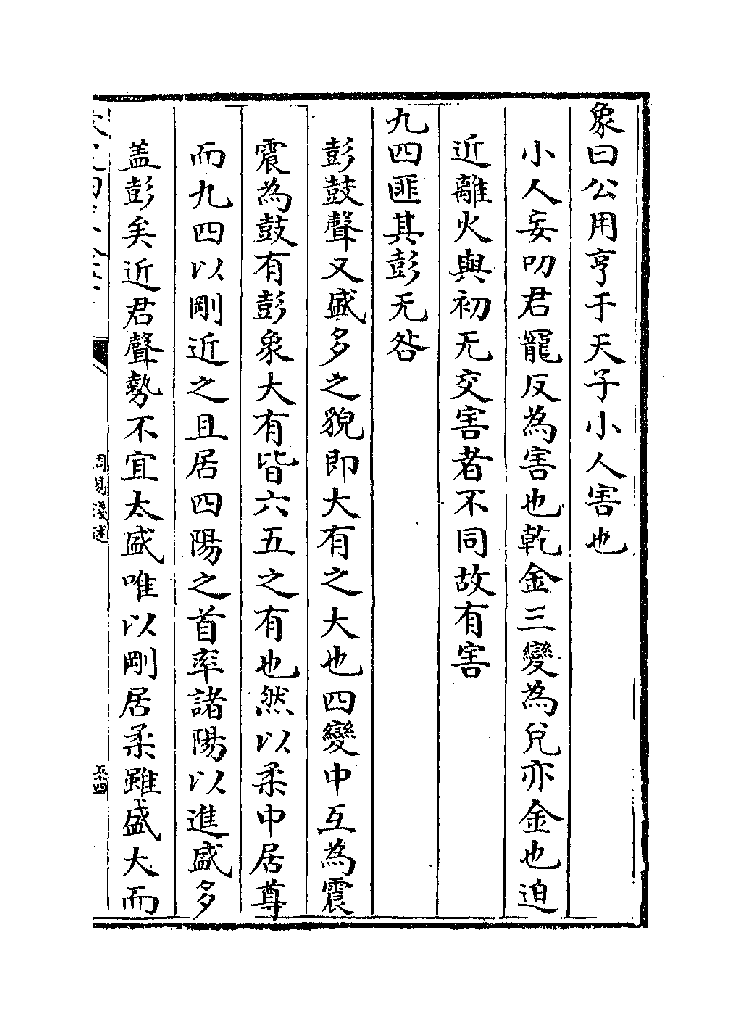 象曰公用亨于天子小人害也
小人妄叨君寵反為害也乾金三變為兌亦金也迫
近離火與初无交害者不同故有害
九四匪其彭无咎
彭鼓聲又盛多之貌即大有之大也四變中互為震
震為鼓有彭象大有皆六五之有也然以柔中居尊
而九四以剛近之且居四陽之首率諸陽以進盛多
蓋彭矣近君聲勢不宜太盛唯以剛居柔雖盛大而
周易淺述